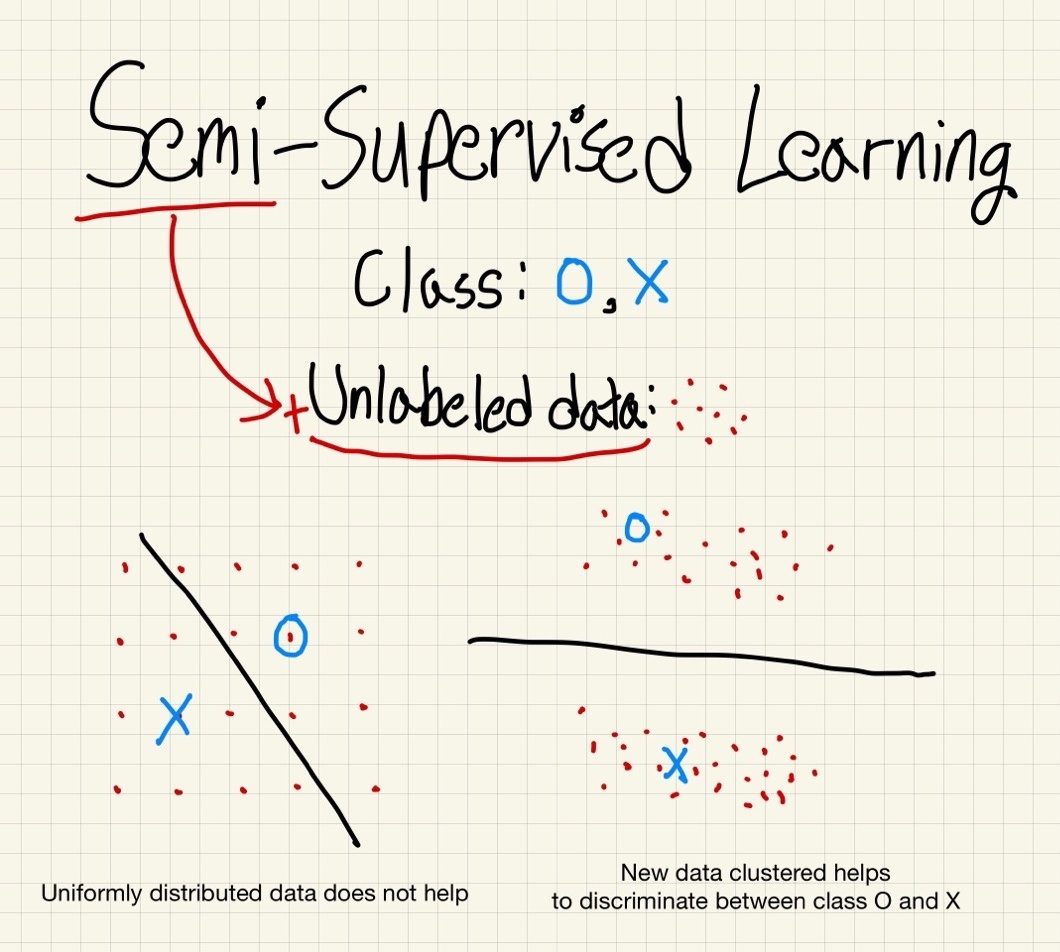 Semi-Supervised Learning
Class: O, X
+ Unlabeled data:
O
O
X
X
Uniformly distributed data does not help
New data clustered helps
to discriminate between class O and X